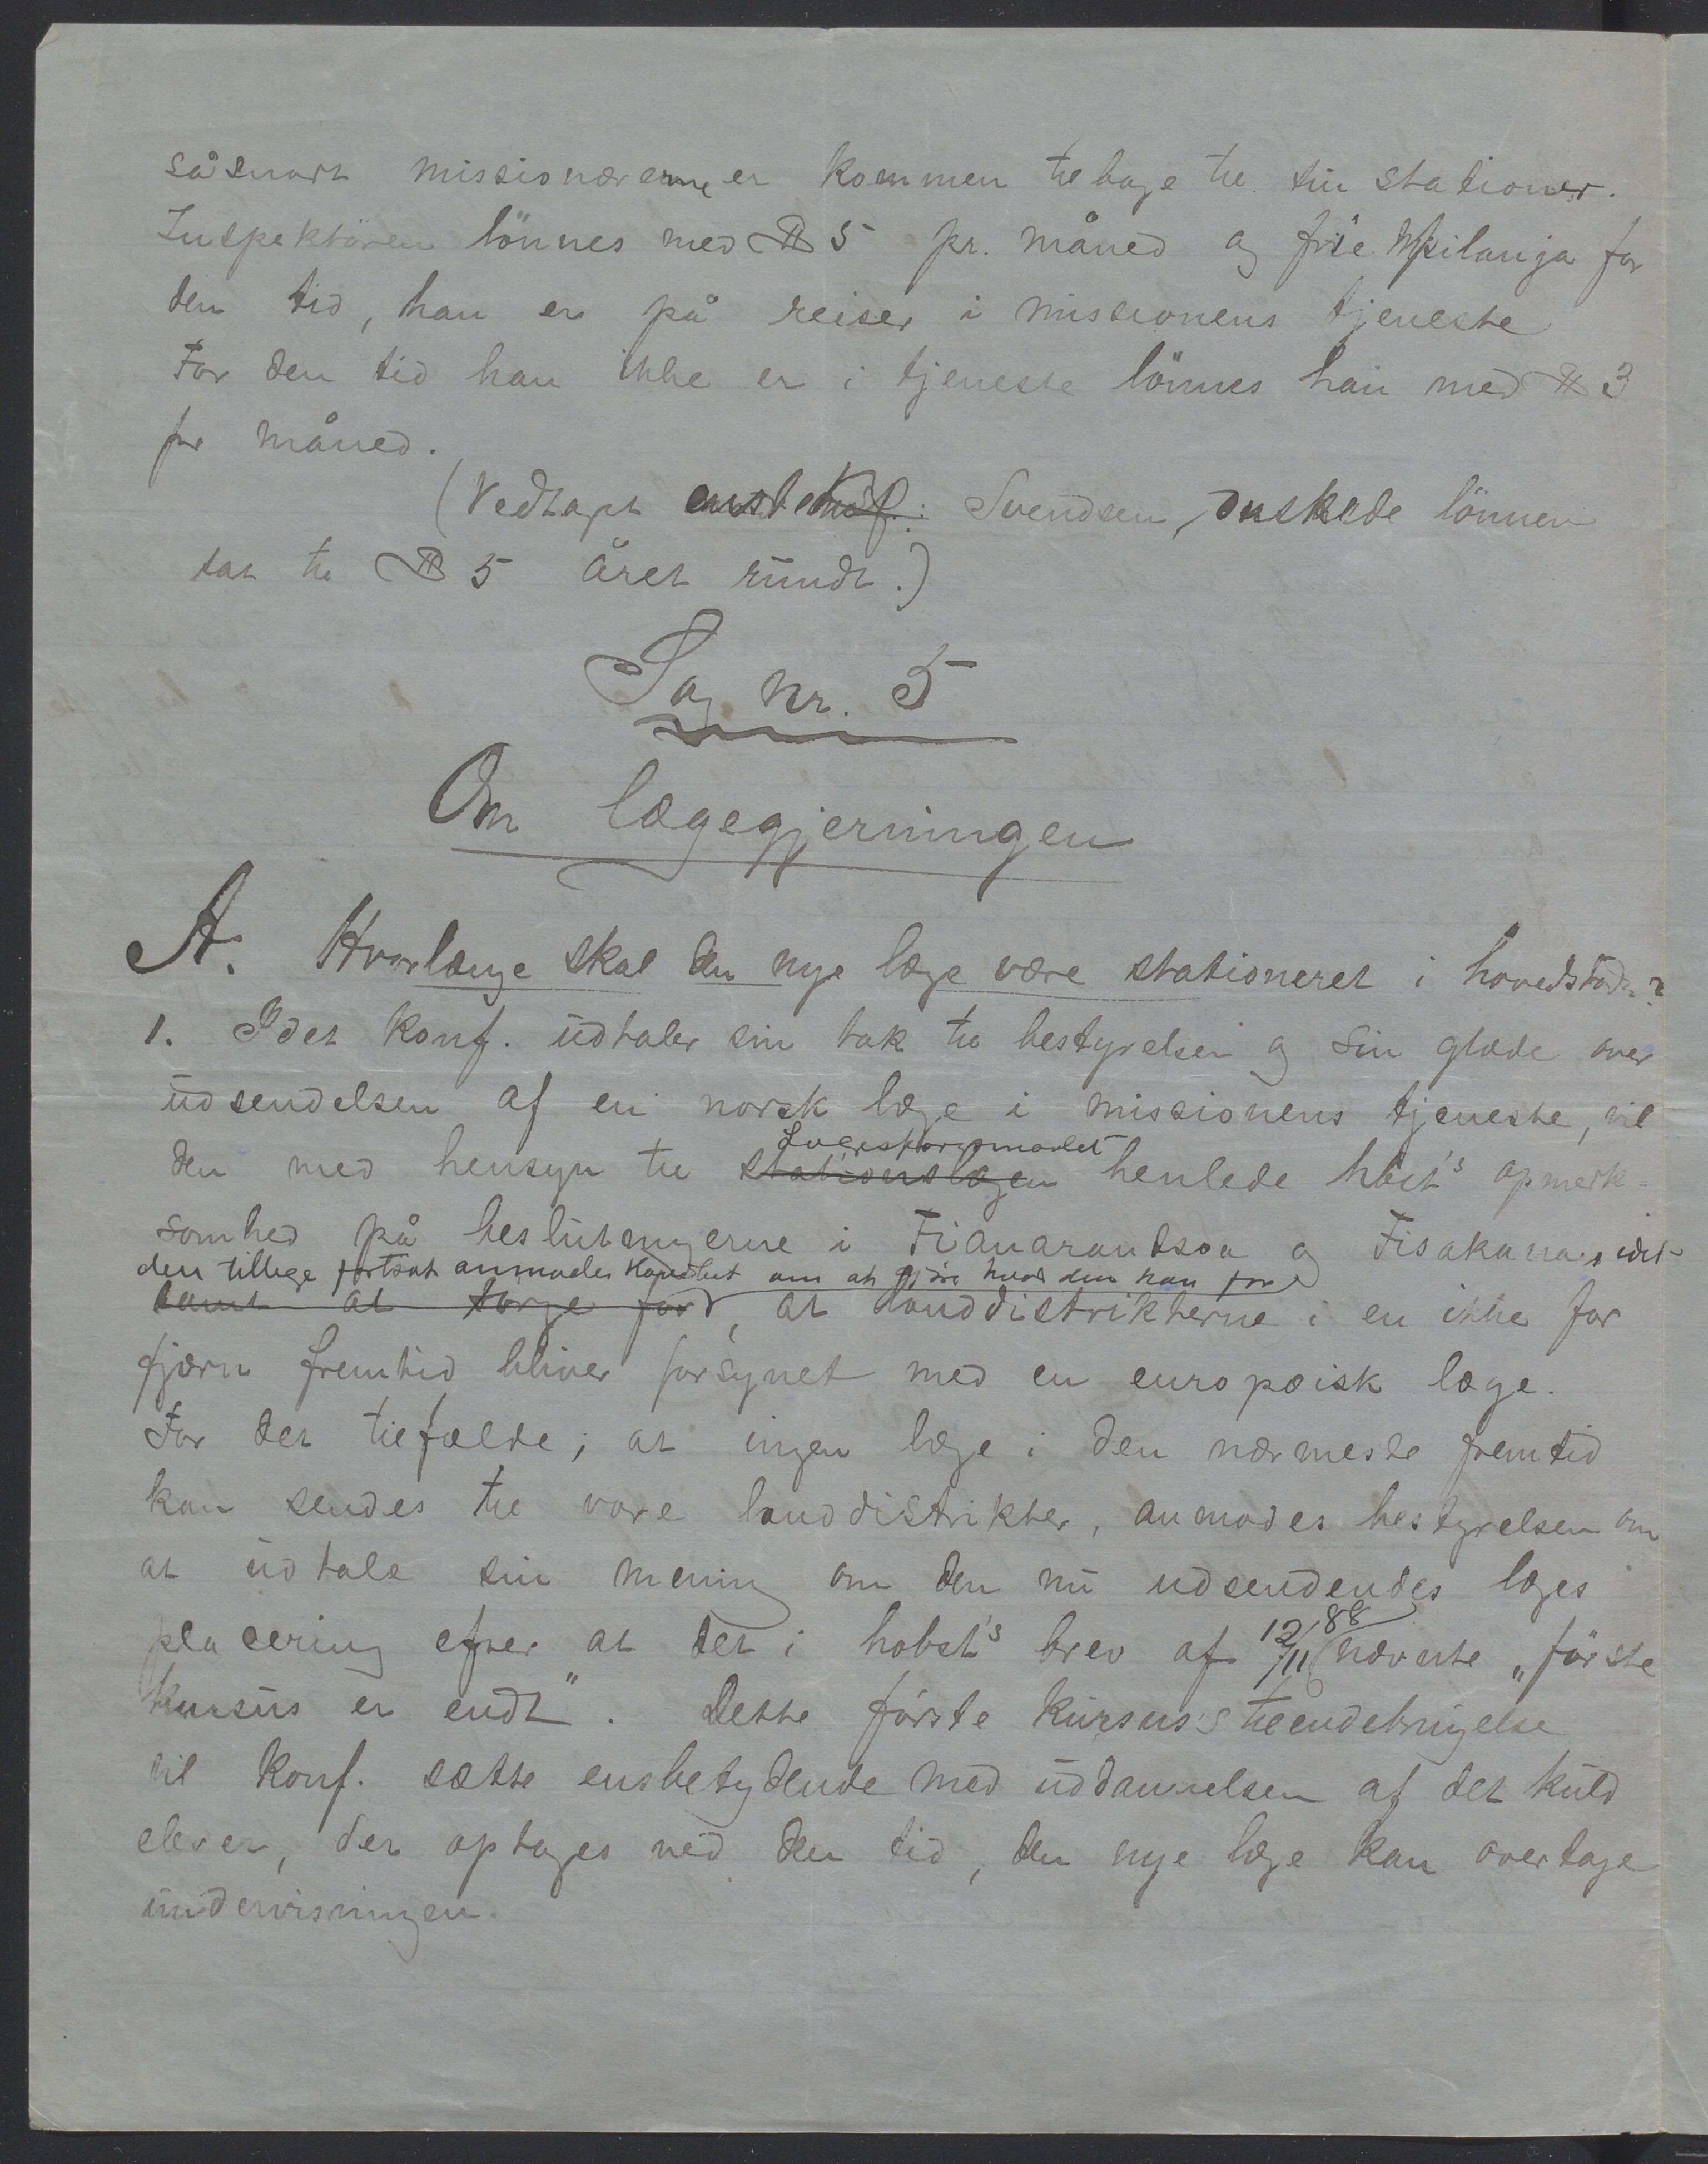 såsnart missionærerne er kommen tilbage til sin stationer.
Inspektören lönnes med $ 5 pr. måned og frie Mpilanja for
den tid, han er på reiser i missionens tjeneste
For den tid han ikke er i tjeneste lönnes han med $ 3
pr måned.
(Vedtaget Svendsen, önskede lönnen
sat til $ 5 året rundt.)
Sag nr. 5
Om lægegjerningen
A. Hvorlænge skal den nye læge være stationeret i hovedstaden?
1. Idet Konf. udtaler sin tak til bestyrelsen og sin glæde over
udsendelsen af en norsk læge i missionens tjeneste, vil
Lægespørgsmålet
den med hensyn til stationslægen henlede hbst's opmerk-
somhed på beslutningerne i Fianarandsoa og Fisakana, idet
den tillige fortsat anmoder hovedbst om at gjöre hvad den kan for
samt at sørge for, at landdistrikterne i en ikke for
fjærn fremtid bliver forsynet med en europæisk læge.
For det tilfælde, at ingen læge i den nærmeste fremtid
kan sendes til vore landdistrikter, anmodes bestyrelsen om
at udtale sin mening om den nu udsendendes læges
placering efter at det i hobst's brev af 12/11 88 nævnte „förste
kursus er endt". Dette förste kursus's tilendebringelse
vil Konf. sætte ensbetydende med uddannelsen af det kuld
elever, der optages ved den tid, den nye læge kan overtage
undervisningen.